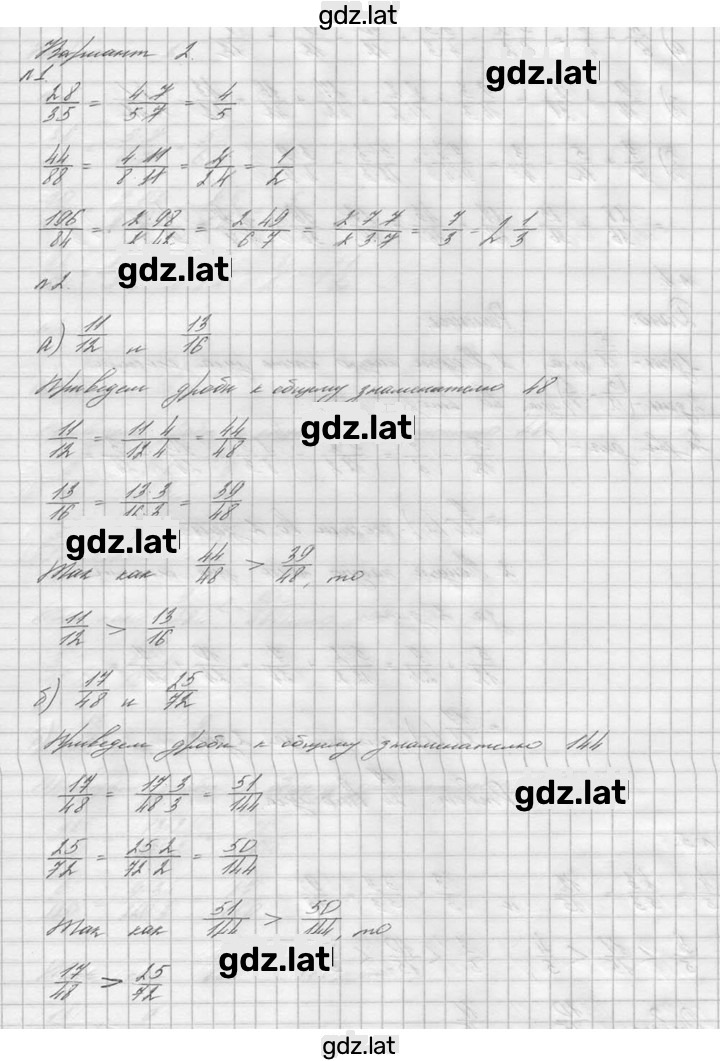 gdz.lat
Вариант 2.
gdz.lat
№1
28/35 = 4·7/5·7 = 4/5
44/88 = 4·11/8·11 = 4/2·4 = 1/2
196/84 = 2·98/2·42 = 2·49/6·7 = 2·7·7/2·3·7 = 7/3 = 2 1/3
gdz.lat
№2.
а) 11/12 и 13/16
Приведем дроби к общему знаменателю 48
gdz.lat
11/12 = 11·4/12·4 = 44/48
13/16 = 13·3/16·3 = 39/48
gdz.lat
Так как 44/48 > 39/48, то
11/12 > 13/16
б) 17/48 и 25/72
Приведем дроби к общему знаменателю 144
17/48 = 17·3/48·3 = 51/144
gdz.lat
25/72 = 25·2/72·2 = 50/144
Так как 51/144 > 50/144, то
gdz.lat
17/48 > 25/72
gdz.lat